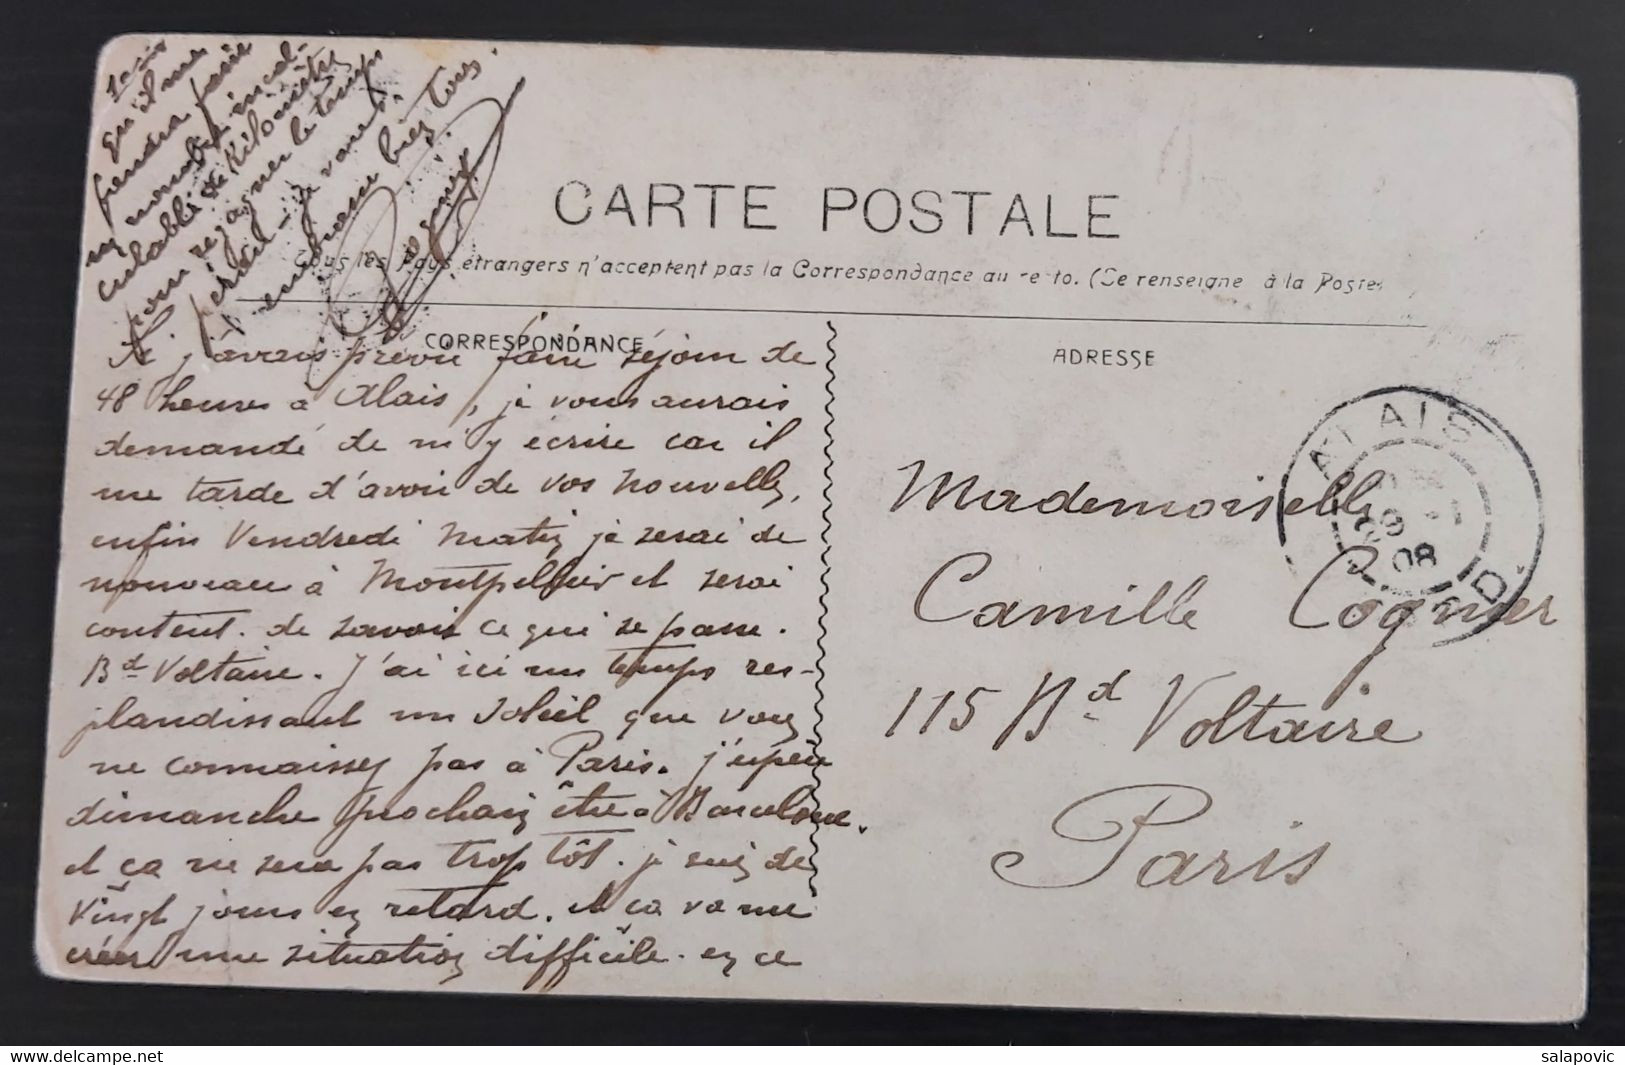 CARTE POSTALE
Tous les Pays étrangers n'acceptent pas la Correspondance au -e-to. (Se renseigne à la Poste
CORRESPONDANCE
ADRESSE
Si j'avais prévu faire séjour de
48 heures à Alais, je vous aurais
demandé de m'y écrire car il
me tarde d'avoir de vos nouvelles,
enfin Vendredi matin je serai de
nouveau à Montpellier et serai
content de savoir ce qui se passe.
Bd Voltaire. J'ai ici un temps res-
plandissant un soleil que vous
ne connaissez pas à Paris. j'espère
dimanche prochain être à Barcelone.
et ça ne sera pas trop tôt. je suis de
Vingt jours en retard. et ça va me
créer une situation difficile. en ce
qu'il me
faudra faire
un nombre incal-
culable de Kilomètres
pour regagner le temps
perdu - Je vous
embrasse bien tous.
Mademoiselle
Camille Cogner
115 Bd Voltaire
Paris
ALAIS
29
08
GARD
delcampe.net
salapovic